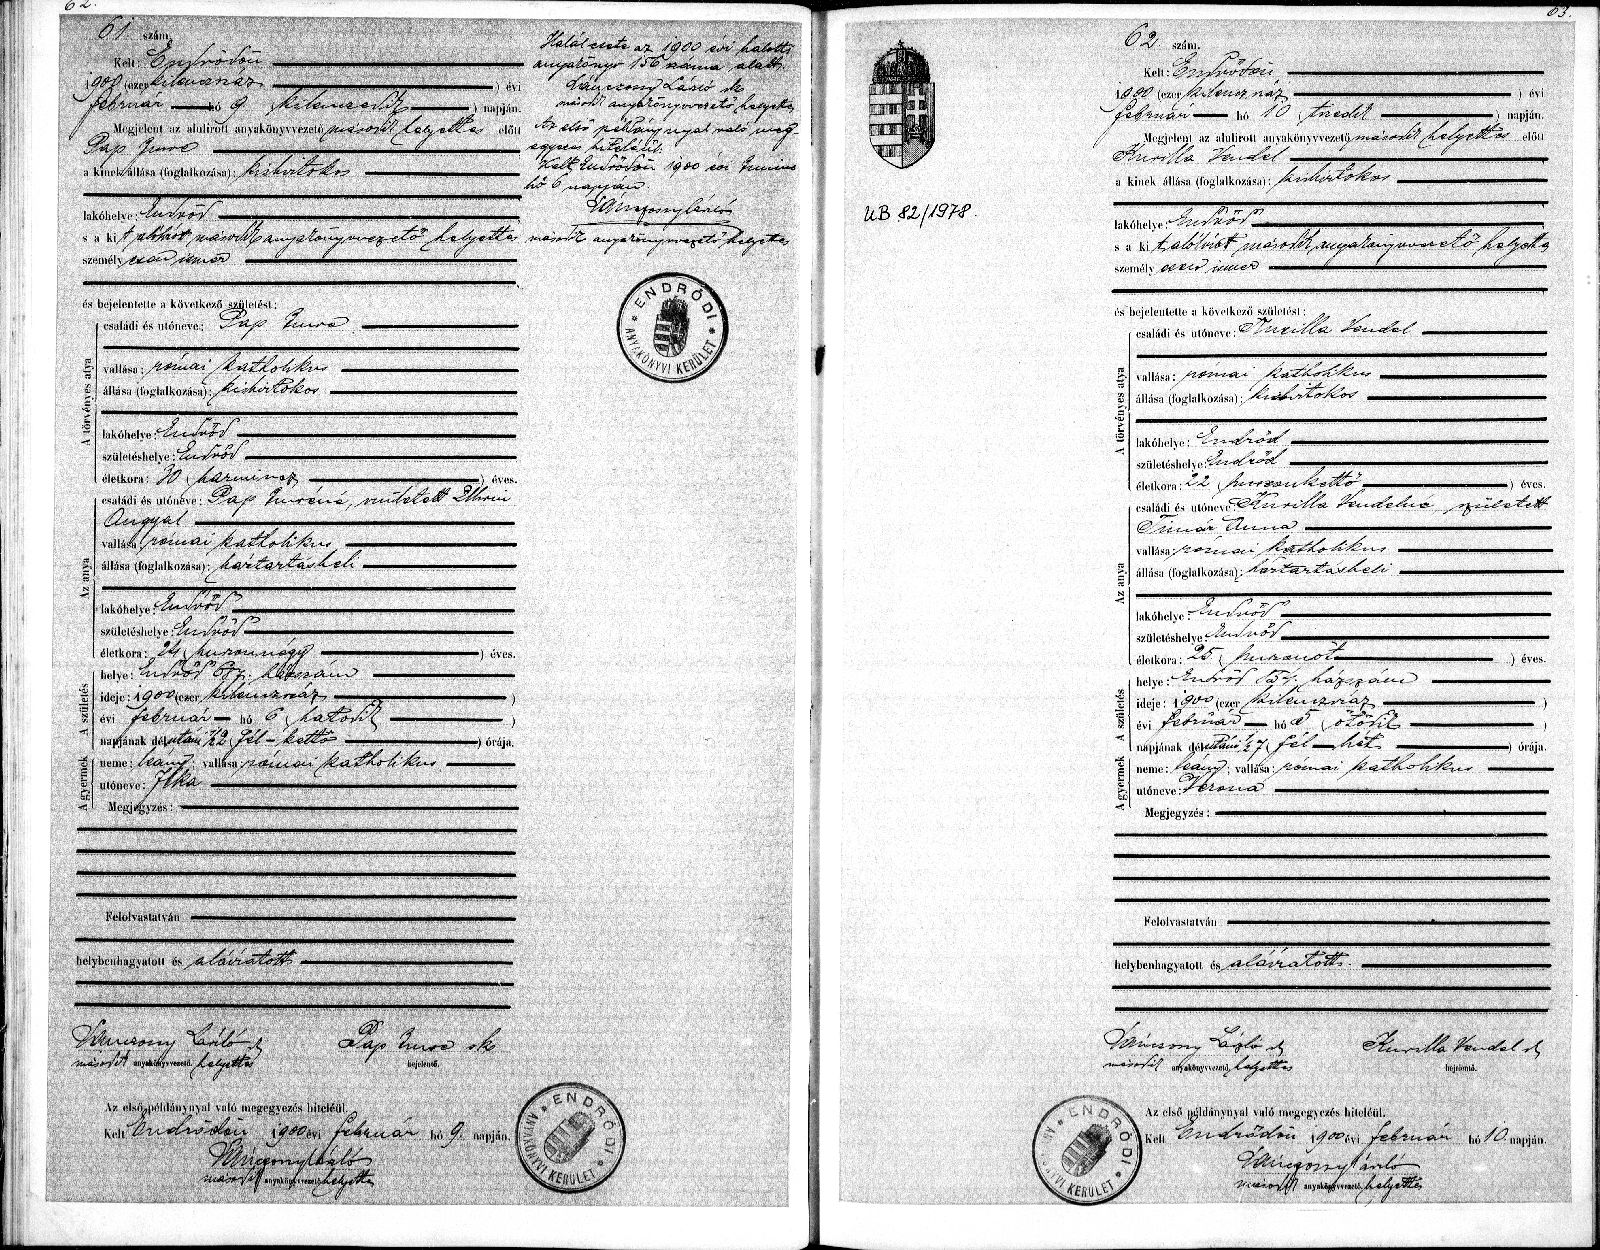 62.
61. szám.
Kelt: Endrődön
1900 (ezer kilenczszáz ) évi
február hó 9 (kilenczedik ) napján.
Megjelent az alulirott anyakönyvvezető második helyettes előtt
Pap Imre
a kinek állása (foglalkozása): kisbirtokos
lakóhelye: Endrőd
s a kit alólirt második anyakönyvvezető helyettes
személyesen ismer
és bejelentette a következő születést:
A törvényes atya
családi és utóneve: Pap Imre
vallása: római katholikus
állása (foglalkozása): kisbirtokos
lakóhelye: Endrőd
születéshelye: Endrőd
életkora: 30 (harmincz ) éves.
Az anya
családi és utóneve: Pap Imréné, született
Angyal
vallása: római katholikus
állása (foglalkozása): háztartásbeli
lakóhelye: Endrőd
születéshelye: Endrőd
életkora: 24 (huszonnégy ) éves.
A születés
helye: Endrőd házszám
ideje: 1900 (ezer kilenczszáz )
évi február hó 6 (hatodik )
napjának délutáni 1/2 2 (fél-kettő ) órája.
A gyermek
neme: leány; vallása: római katholikus
utóneve: Ilka
Megjegyzés:
Felolvastatván
helybenhagyatott és aláiratott
László sk Pap Imre sk
második anyakönyvvezető helyettes bejelentő.
Az első példánynyal való megegyezés hiteléül.
Kelt Endrődön 1900 évi február hó 9. napján.
László
második anyakönyvvezető helyettes
ENDRŐDI ANYAKÖNYVI KERÜLET
Halálesete az 1900 évi halotti
anyakönyv 156 száma alatt.
László sk
második anyakönyvvezető helyettes
Az első példánynyal való meg-
egyezés hiteléül.
Kelt Endrődön 1900 évi Junius
hó 6 napján
László
második anyakönyvvezető helyettes
ENDRŐDI ANYAKÖNYVI KERÜLET
63.
UB 82/1978.
62 szám.
Kelt: Endrődön,
1900 (ezer kilenczszáz ) évi
február hó 10 (tizedik ) napján.
Megjelent az alulirott anyakönyvvezető második helyettes előtt
Kurilla Vendel
a kinek állása (foglalkozása): kisbirtokos
lakóhelye: Endrőd
s a kit alólirt második anyakönyvvezető helyettes
személyesen ismer
és bejelentette a következő születést:
A törvényes atya
családi és utóneve: Kurilla Vendel
vallása: római katholikus
állása (foglalkozása): kisbirtokos
lakóhelye: Endrőd
születéshelye: Endrőd
életkora: 22 (huszonkettő ) éves.
Az anya
családi és utóneve: Kurilla Vendelné, született
Timár Anna
vallása: római katholikus
állása (foglalkozása): háztartásbeli
lakóhelye: Endrőd
születéshelye: Endrőd
életkora: 25 (huszonöt ) éves.
A születés
helye: Endrőd házszám
ideje: 1900 (ezer kilenczszáz )
évi február hó 5 (ötödik )
napjának délutáni 1/2 7 (fél-hét ) órája.
A gyermek
neme: leány; vallása: római katholikus
utóneve: Verona
Megjegyzés:
Felolvastatván
helybenhagyatott és aláiratott.
László sk Kurilla Vendel sk
második anyakönyvvezető helyettes bejelentő.
Az első példánynyal való megegyezés hiteléül.
Kelt Endrődön 1900 évi február hó 10. napján.
László
második anyakönyvvezető helyettes
ENDRŐDI ANYAKÖNYVI KERÜLET